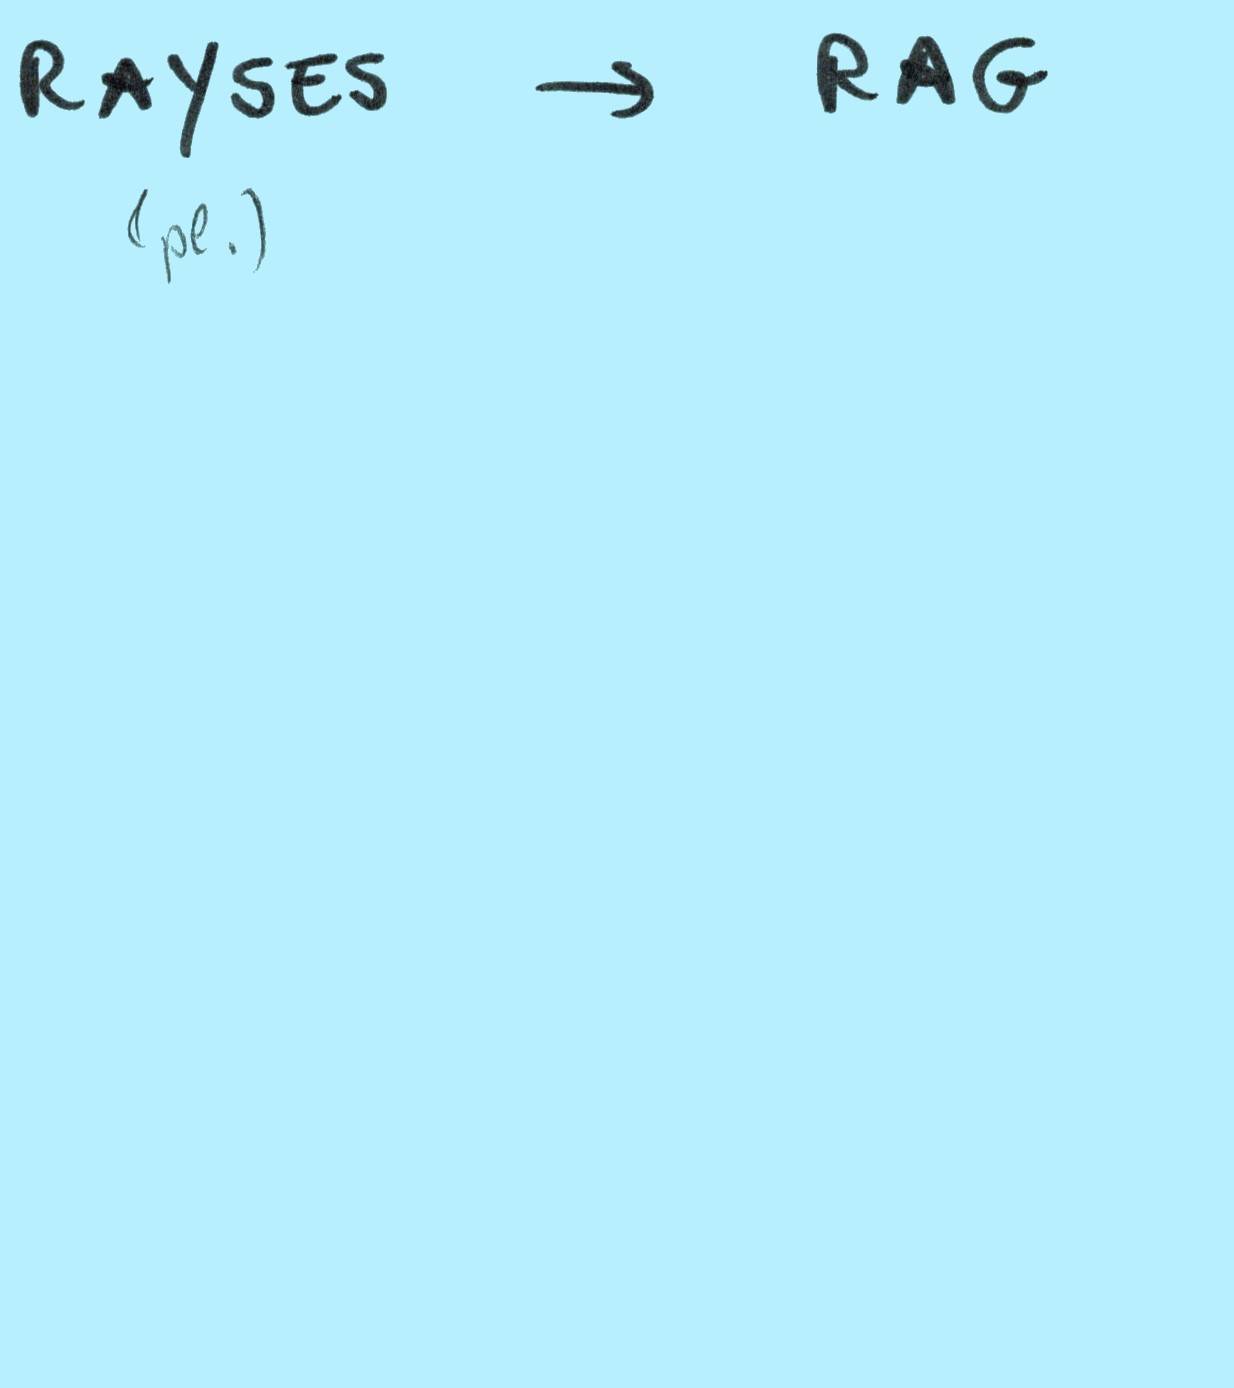 RAYSES → RAG
(pl.)